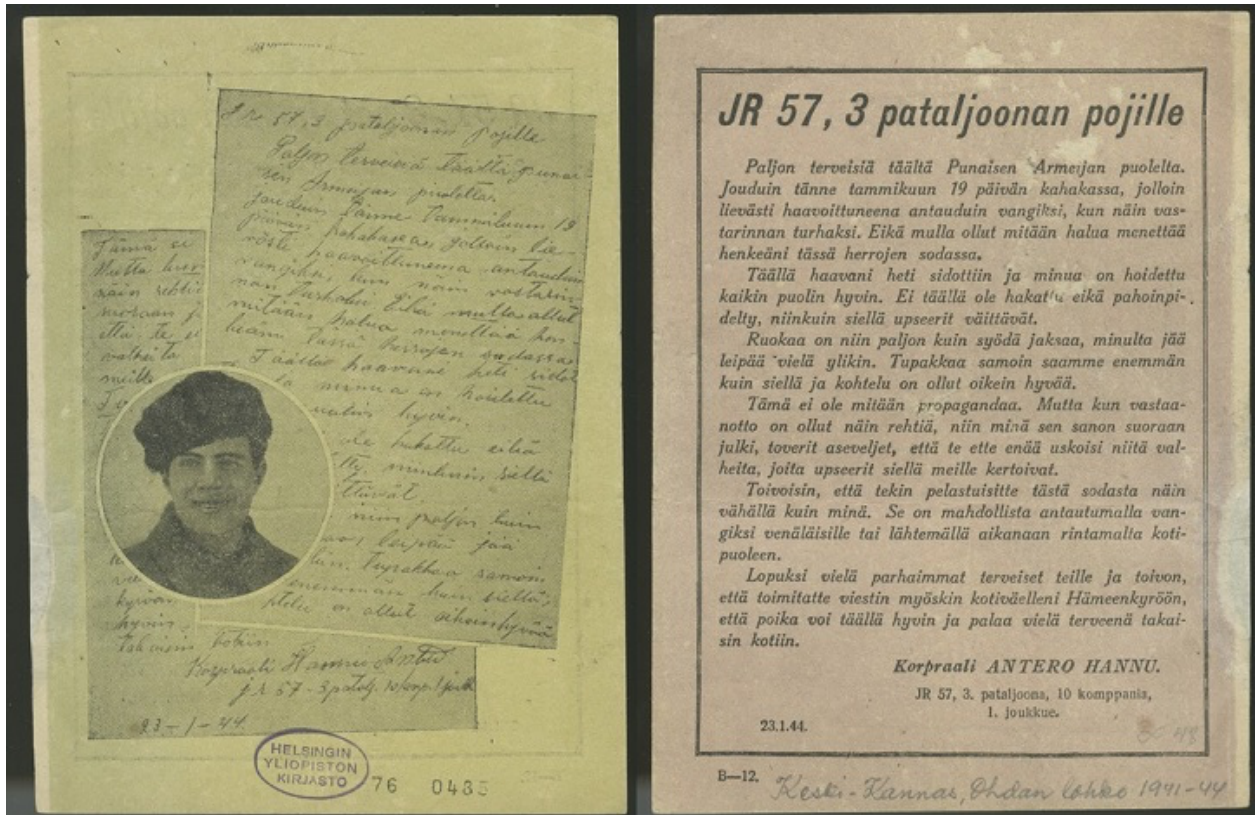 Jr 57,3 pataljoonan pojille
Paljon terveisiä täältä punai-
sen Armeijan puolelta
Jouduin tänne tammikuun 19
päivän kahakassa jolloin lie-
västi haavoittuneena antauduin
vangiksi, kun näin vastarin-
nan turhaksi Eikä mulla ollut
mitään halua menettää hen-
keäni tässä herrojen sodassa
Täällä haavani heti sidot
minua on hoidettu
hyvin.
ole hakattu eikä
niinkuin siellä
niin paljon kuin
leipää jää
tupakkaa samoin
enemmän kuin siellä,
on ollut oikeinhyvää
Tämä ei
Mutta kun
näin rehti
suoraan j
että te e
valheita
meille
hyvin
takaisin kotiin
Korpraali Hannu Antero
jr 57 - 3 patalj.
23-1-44.
HELSINGIN
YLIOPISTON
KIRJASTO
76 0485
JR 57, 3 pataljoonan pojille
Paljon terveisiä täältä Punaisen Armeijan puolelta.
Jouduin tänne tammikuun 19 päivän kahakassa, jolloin
lievästi haavoittuneena antauduin vangiksi, kun näin vas-
tarinnan turhaksi. Eikä mulla ollut mitään halua menettää
henkeäni tässä herrojen sodassa.
Täällä haavani heti sidottiin ja minua on hoidettu
kaikin puolin hyvin. Ei täällä ole hakattu eikä pahoinpi-
delty, niinkuin siellä upseerit väittävät.
Ruokaa on niin paljon kuin syödä jaksaa, minulta jää
leipää vielä ylikin. Tupakkaa samoin saamme enemmän
kuin siellä ja kohtelu on ollut oikein hyvää.
Tämä ei ole mitään propagandaa. Mutta kun vastaa-
notto on ollut näin rehtiä, niin minä sen sanon suoraan
julki, toverit aseveljet, että te ette enää uskoisi niitä val-
heita, joita upseerit siellä meille kertoivat.
Toivoisin, että tekin pelastuisitte tästä sodasta näin
vähällä kuin minä. Se on mahdollista antautumalla van-
giksi venäläisille tai lähtemällä aikanaan rintamalta koti-
puoleen.
Lopuksi vielä parhaimmat terveiset teille ja toivon,
että toimitatte viestin myöskin kotiväelleni Hämeenkyröön,
että poika voi täällä hyvin ja palaa vielä terveenä takai-
sin kotiin.
Korpraali ANTERO HANNU.
JR 57, 3. pataljoona, 10 komppania,
1. joukkue.
23.1.44.
B—12.
Keski-Kannas, Ohdan lohko 1941-44